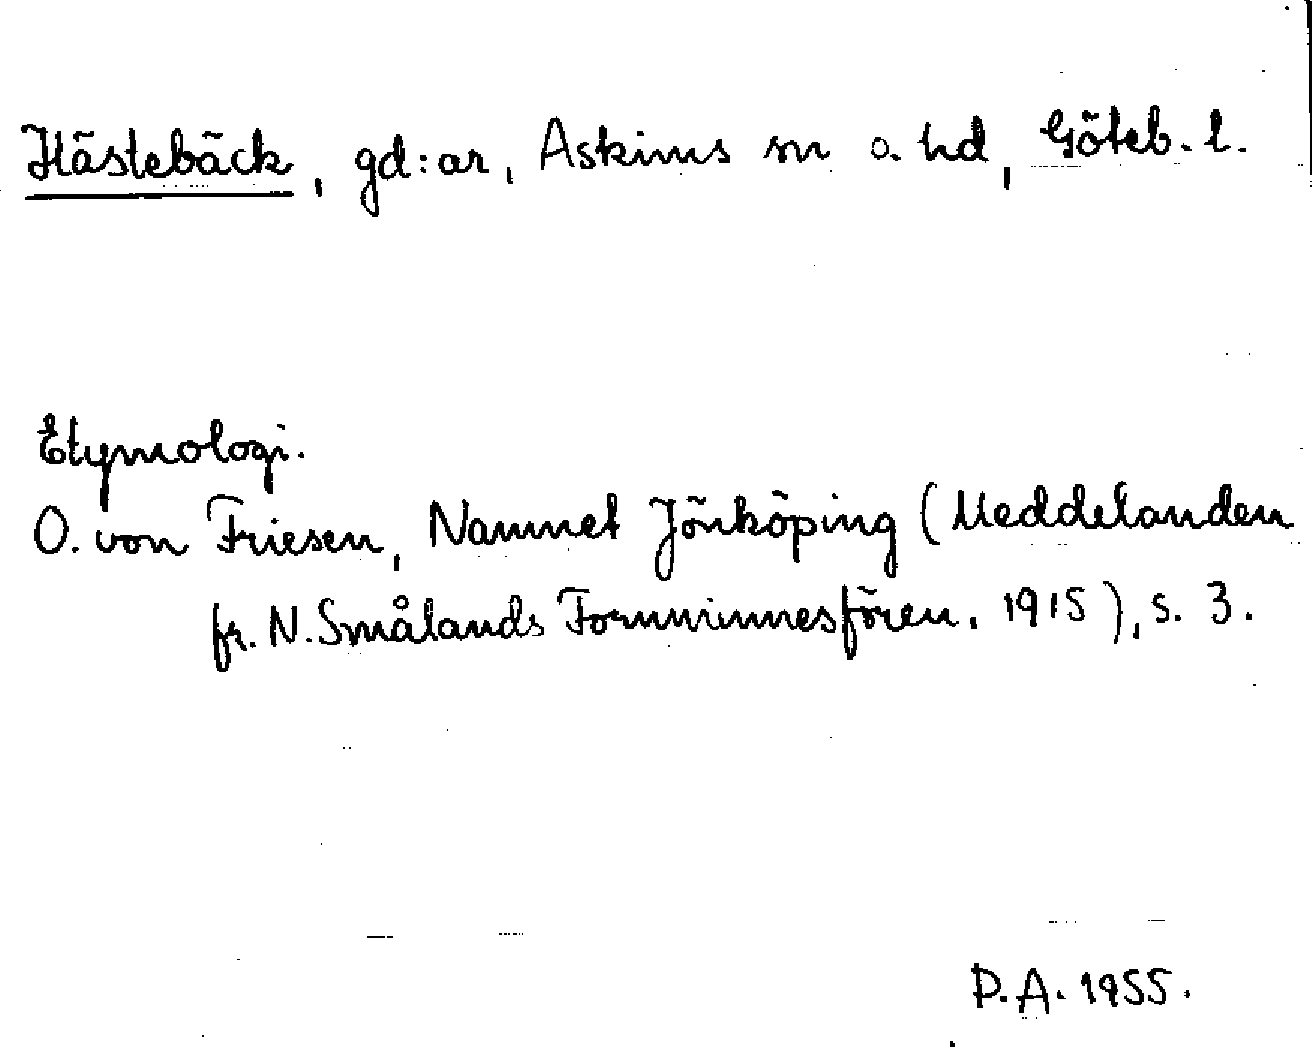 Hästebäck, gd:ar, Askims sn o. hd, Göteb. l.
Etymologi.
O. von Friesen, Namnet Jönköping (Meddelanden
fr. N. Smålands Fornminnesfören. 1915), s. 3.
D.A. 1955.